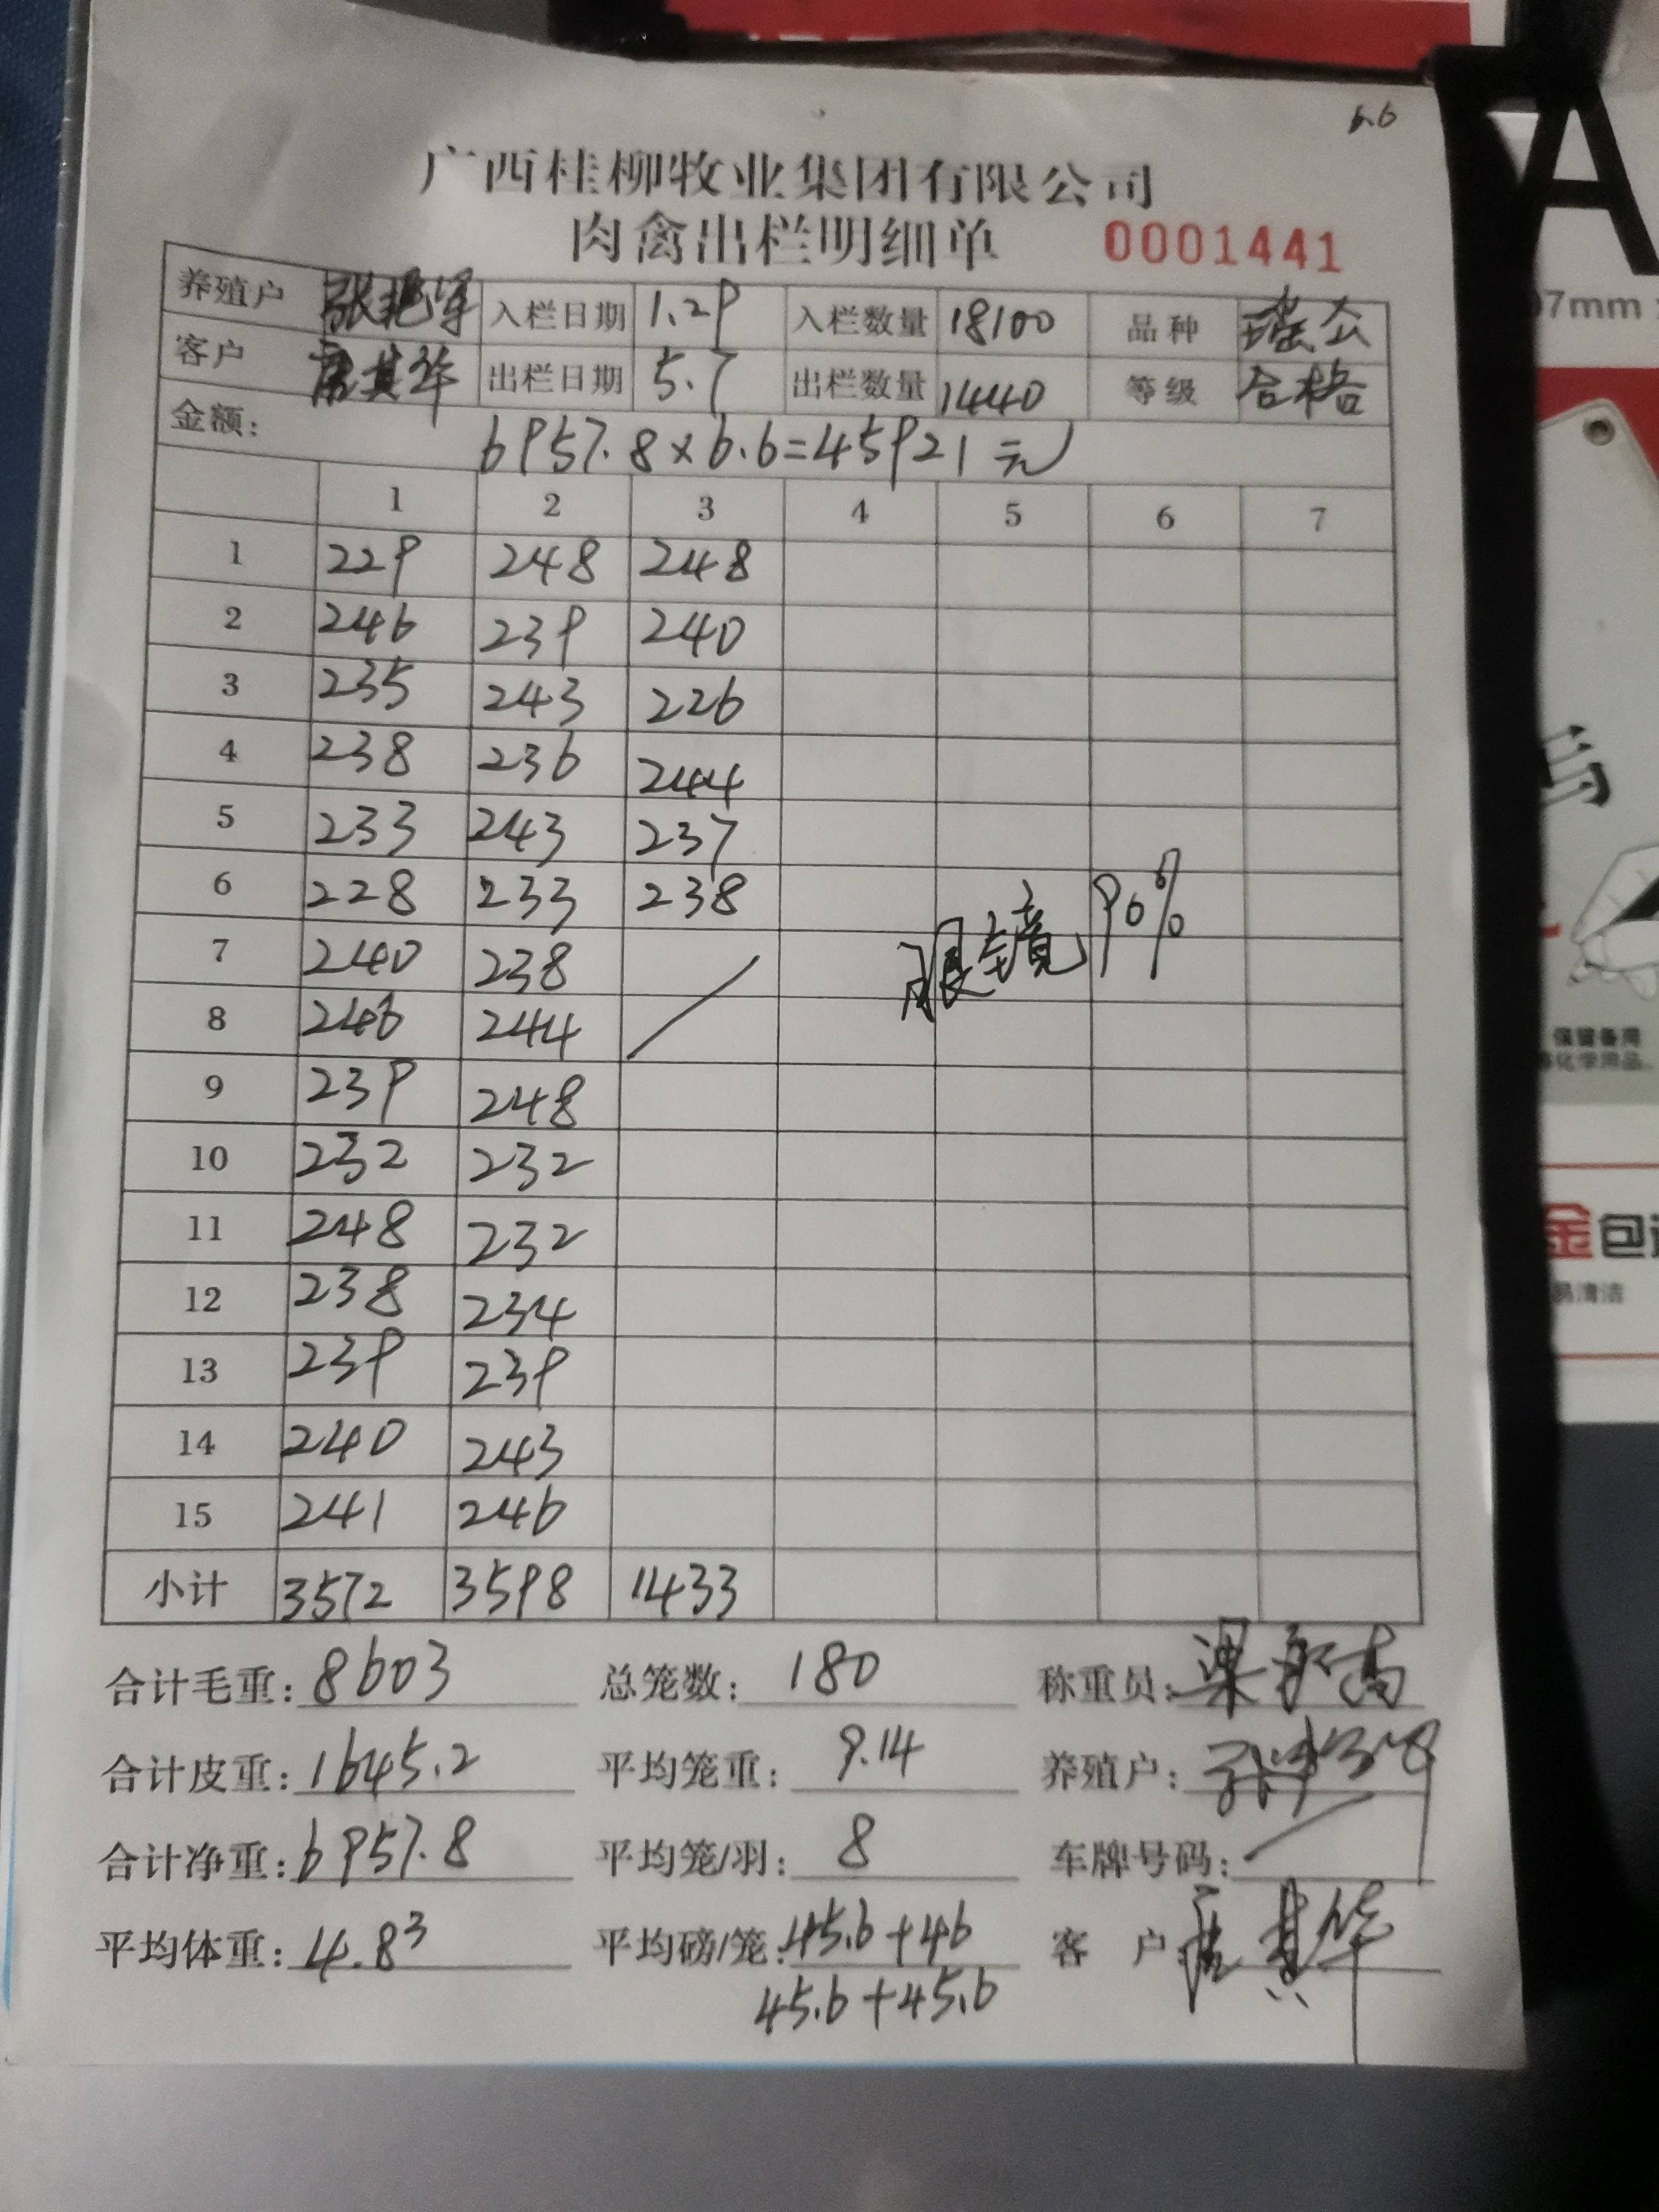 6.6
广西桂柳牧业集团有限公司
肉禽出栏明细单 0001441
养殖户 入栏日期 1.29 入栏数量 18100 品种 瑶公
客户 唐其华 出栏日期 5.7 出栏数量 1440 等级 合格
金额: 6957.8×6.6=45921元
1 2 3 4 5 6 7
1 229 248 248
2 246 239 240
3 235 243 226
4 238 236 244
5 233 243 237
6 228 233 238
7 240 238
眼镜90%
8 246 244
9 239 248
10 232 232
11 248 232
12 238 234
13 239 239
14 240 243
15 241 246
小计 3572 3598 1433
合计毛重: 8603 总笼数: 180 称重员:
合计皮重: 1645.2 平均笼重: 9.14 养殖户:
合计净重: 6957.8 平均笼/羽: 8 车牌号码:
平均体重: 4.83 平均磅/笼: 45.6+46 客户: 唐其华
45.6+45.6
07mm
保留备用
化学用品
金包
易清洁